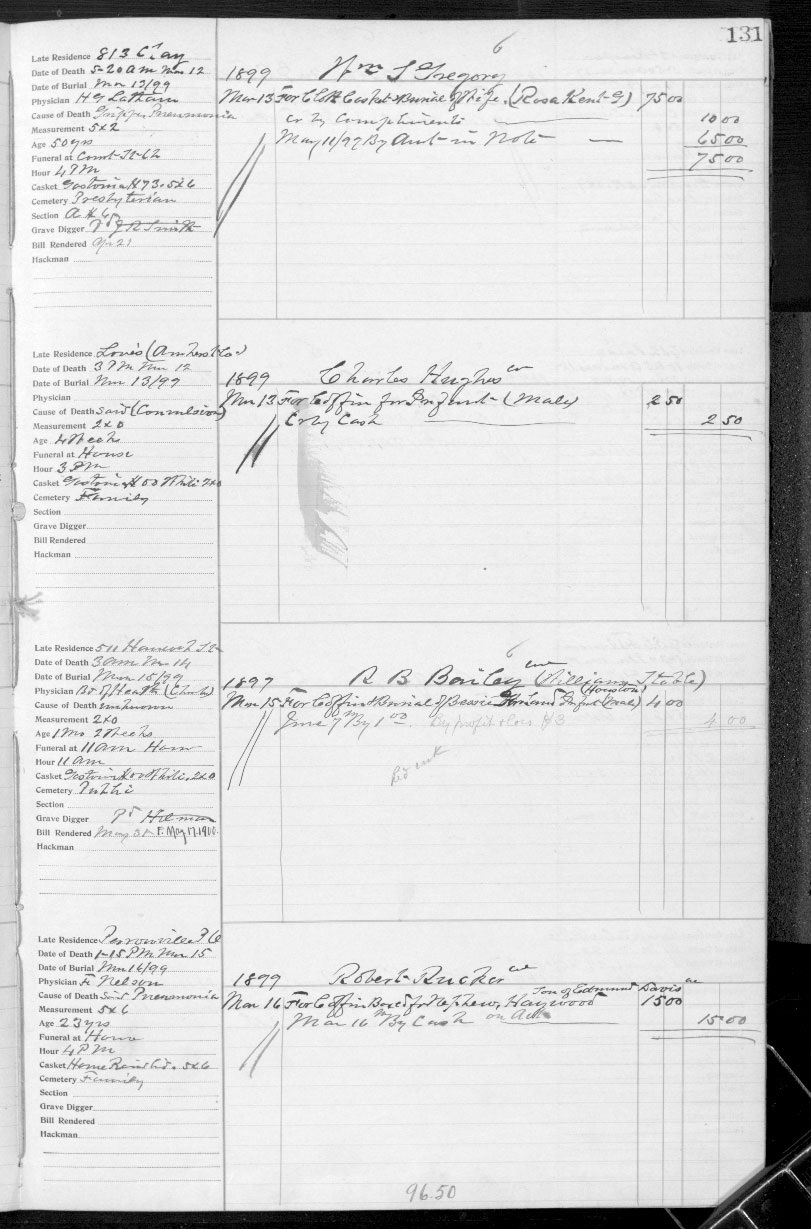 131
6
Late Residence 813 Clay
Date of Death 5-20 am Mar 12
Date of Burial Mar 13/99
Physician H G Latham
Cause of Death Grippe, Pneumonia
Measurement 5x2
Age 50 yrs
Funeral at Court St Ch
Hour 4 PM
Casket Gastonia # 73. 5x6
Cemetery Presbyterian
Section A # 6
Grave Digger J R Smith
Bill Rendered Apr 21
Hackman
1899 Wm S Gregory
Mar 13 For Cloth Casket & Burial of Wife, (Rosa Kent G) 75 00
cr by Compliments 10 00
May 11/99 By Amt in Note 65 00
75 00
Late Residence (Amherst Co)
Date of Death 3 PM Mar 12
Date of Burial Mar 13/99
Physician
Cause of Death Said (Convulsion)
Measurement 2x0
Age 4 Weeks
Funeral at House
Hour 3 PM
Casket Gastonia # 00 White 2x0
Cemetery Family
Section
Grave Digger
Bill Rendered
Hackman
1899 Charles Hughes
Mar 13 For Coffin for Infant (Male) 2 50
Cr by Cash 2 50
6
Late Residence 511 Hancock St
Date of Death 3 am Mar 14
Date of Burial Mar 15/99
Physician Bd of Health
Cause of Death unknown
Measurement 2x0
Age 1 Mo 2 Weeks
Funeral at 11 am Home
Hour 11 am
Casket Gastonia # 00 White. 2x0
Cemetery Public
Section
Grave Digger
Bill Rendered May 31 F. May 17. 1900.
Hackman
1899 R B Bailey (Williams Stable)
(Houston)
Mar 15 For Coffin & Burial of Bessie Infant 4 00
June 7th By 1 00. By profit & loss 4 00
Late Residence
Date of Death 1-15 PM Mar 15
Date of Burial Mar 16/99
Physician Nelson
Cause of Death Said Pneumonia
Measurement 5x6
Age 23 yrs
Funeral at Home
Hour 4 PM
Casket 5x6
Cemetery Family
Section
Grave Digger
Bill Rendered
Hackman
1899 Robert Rucker
Son of Edmund Davis
Mar 16 For Coffin Box & for Nephew, Haywood 15 00
Mar 16th By Cash on Acct 15 00
96.50